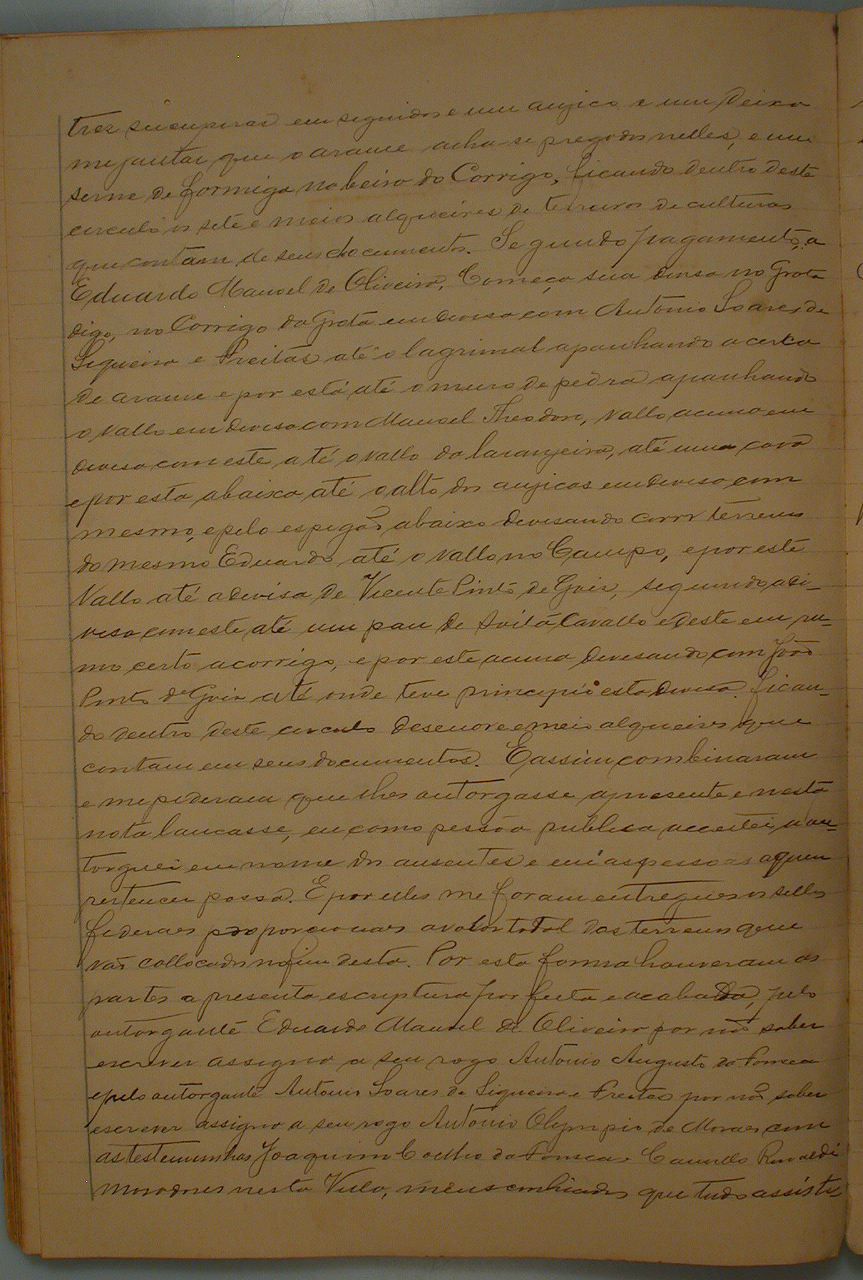 tres sucupiras em seguidos e um angico e um Deixa
me jantar que o arame acha-se pregado nelles, e um
serne de formiga na beira do Corrigo, ficando dentro deste
circulo os sete e meios alqueires de terrenos de culturas
que contam de seus documentos. Segundo pagamento, a
Eduardo Manoel de Oliveira. Começa sua devisa no Grota
digo, no Corrigo da Grota em devisa com Antonio Soares de
Siqueira e Freitas até o lagrimal apanhando a cerca
de arame e por está até o muro de pedra apanhando
o vallo em devisa com Manoel Theodoro, vallo acima em
devisa com este até o vallo da laranjeira, até uma cava
e por esta abaixo até o alto dos angicos em devisa com
mesmo, e pelo espigão abaixo devisando com terrenos
do mesmo Eduardo até o vallo no Campo, e por este
Vallo até a devisa de Vicente Pinto de Gois, seguindo a di-
visa com este até um pau de Soita Cavallo e deste em ru-
mo certo a corrigo, e por este acima devisando com João
Pinto de Gois até onde teve principio esta devisa. Fican-
do dentro deste circulo desenove e meio alqueires que
contam em seus documentos. E assim combinaram
e me pideram que lhes autorgasse a presente e nesta
nota lancasse, eu como pessôa publica acceitei e au-
torguei em nome dos ausentes e mais pessoas a quem
pertencer possa. E por elles me foram entregues os sellos
federaes proporcionaes a valor total dos terrenos que
vão collocados no fim desta. Por esta forma houveram as
partes a presente escriptura por feita e acabada, pelo
autorgante Eduardo Manoel de Oliveira por não saber
escrever assigno a seu rogo Antonio Augusto da Fonseca
e pelo autorgante Antonio Soares de Siqueira e Freitas por não saber
escrever assigno a seu rogo Antonio Olympio de Moraes com
as testemunhas Joaquim Coelho da Fonseca e Camillo
moradores nesta Villa, meus conhecidos que tudo assisti